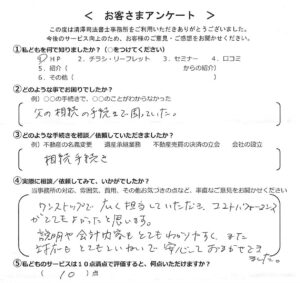 ＜ お客さまアンケート ＞
この度は清澤司法書士事務所をご利用いただきありがとうございました。
今後のサービス向上のため、お客様のご意見・ご感想をお聞かせください。
①私どもを何で知りましたか？（○をつけてください）
1．HP 2．チラシ・リーフレット 3．セミナー 4．口コミ
5．紹介（ からの紹介）
6．その他（ ）
②どのような事でお困りでしたか？
例）○○の手続きで、○○のことがわからなかった
父の相続の手続きで困っていた。
③どのような手続きを相談／依頼していただきましたか？
例）不動産の名義変更 遺産承継業務 不動産売買の決済の立会 会社の設立
相続手続き
④実際に相談／依頼してみて、いかがでしたか？
当事務所の対応、雰囲気、費用、その他お気づきの点など、率直なご意見をお聞かせください
ワンストップで広く担当していただける、コストパフォーマンス
がとてもよかったと思います。
説明や会計内容もとてもわかりやすく、また
対応もとてもていねいで安心しておまかせでき
ました。
⑤私どものサービスは１０点満点で評価すると、何点いただけますか？
（ 10 ）点